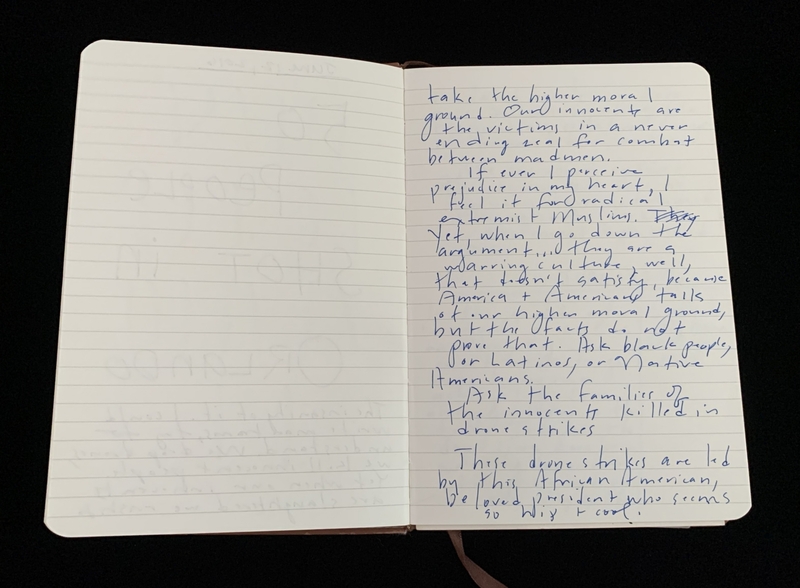 50
PEOPLE
SHOT IN
ORLANDO
take the higher moral
ground. Our innocents are
the victims in a never
ending zeal for combat
between madmen.
If ever I perceive
prejudice in my heart, I
feel it for radical
extremist Muslims.
Yet, when I go down the
argument... they are a
warring culture, well,
that doesn't satisfy, because
America + Americans talk
of our higher moral ground,
but the facts do not
prove that. Ask black people,
or Latinos, or Native
Americans.
Ask the families of
the innocents killed in
drone strikes
These drone strikes are led
by this African American,
beloved president who seems
so hip + cool.